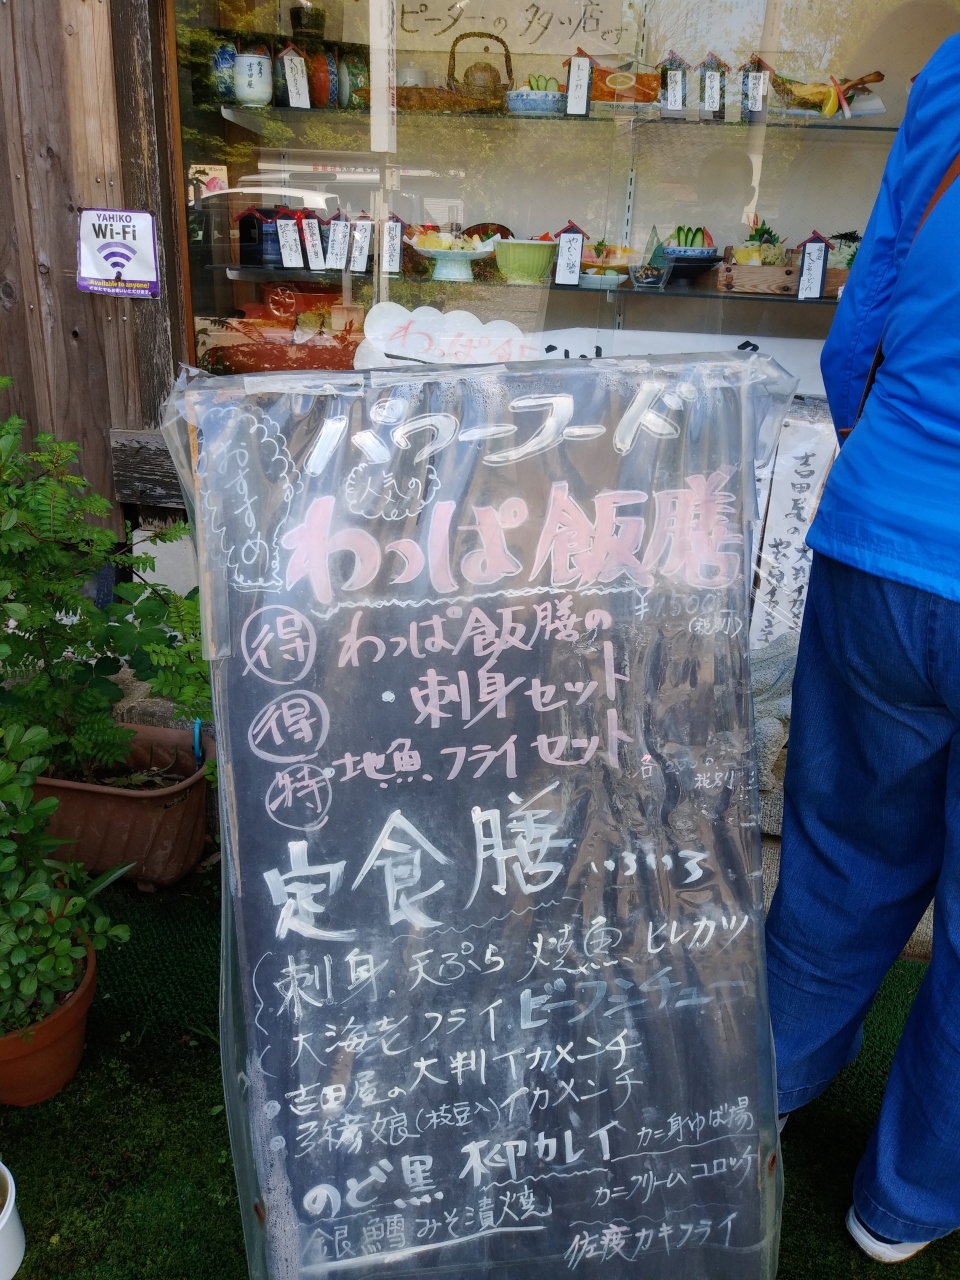 ピーターの多い店です
YAHIKO
Wi-Fi
Available to anyone!
わっぱ飯
パワーフード
おすすめ
人気の
わっぱ飯膳
¥1500
(税別)
得 わっぱ飯膳の
得 刺身セット
特 地魚、フライセット
各2000
税別
定食膳 いろいろ
刺身、天ぷら 焼魚、ヒレカツ
大海老フライ、ビーフシチュー
吉田屋の大判イカメンチ
弥彦娘(枝豆入)イカメンチ
のど黒 柳カレイ カニ身ゆば揚
銀鱈みそ漬焼 カニクリームコロッケ
佐渡カキフライ
吉田屋の大判イカ